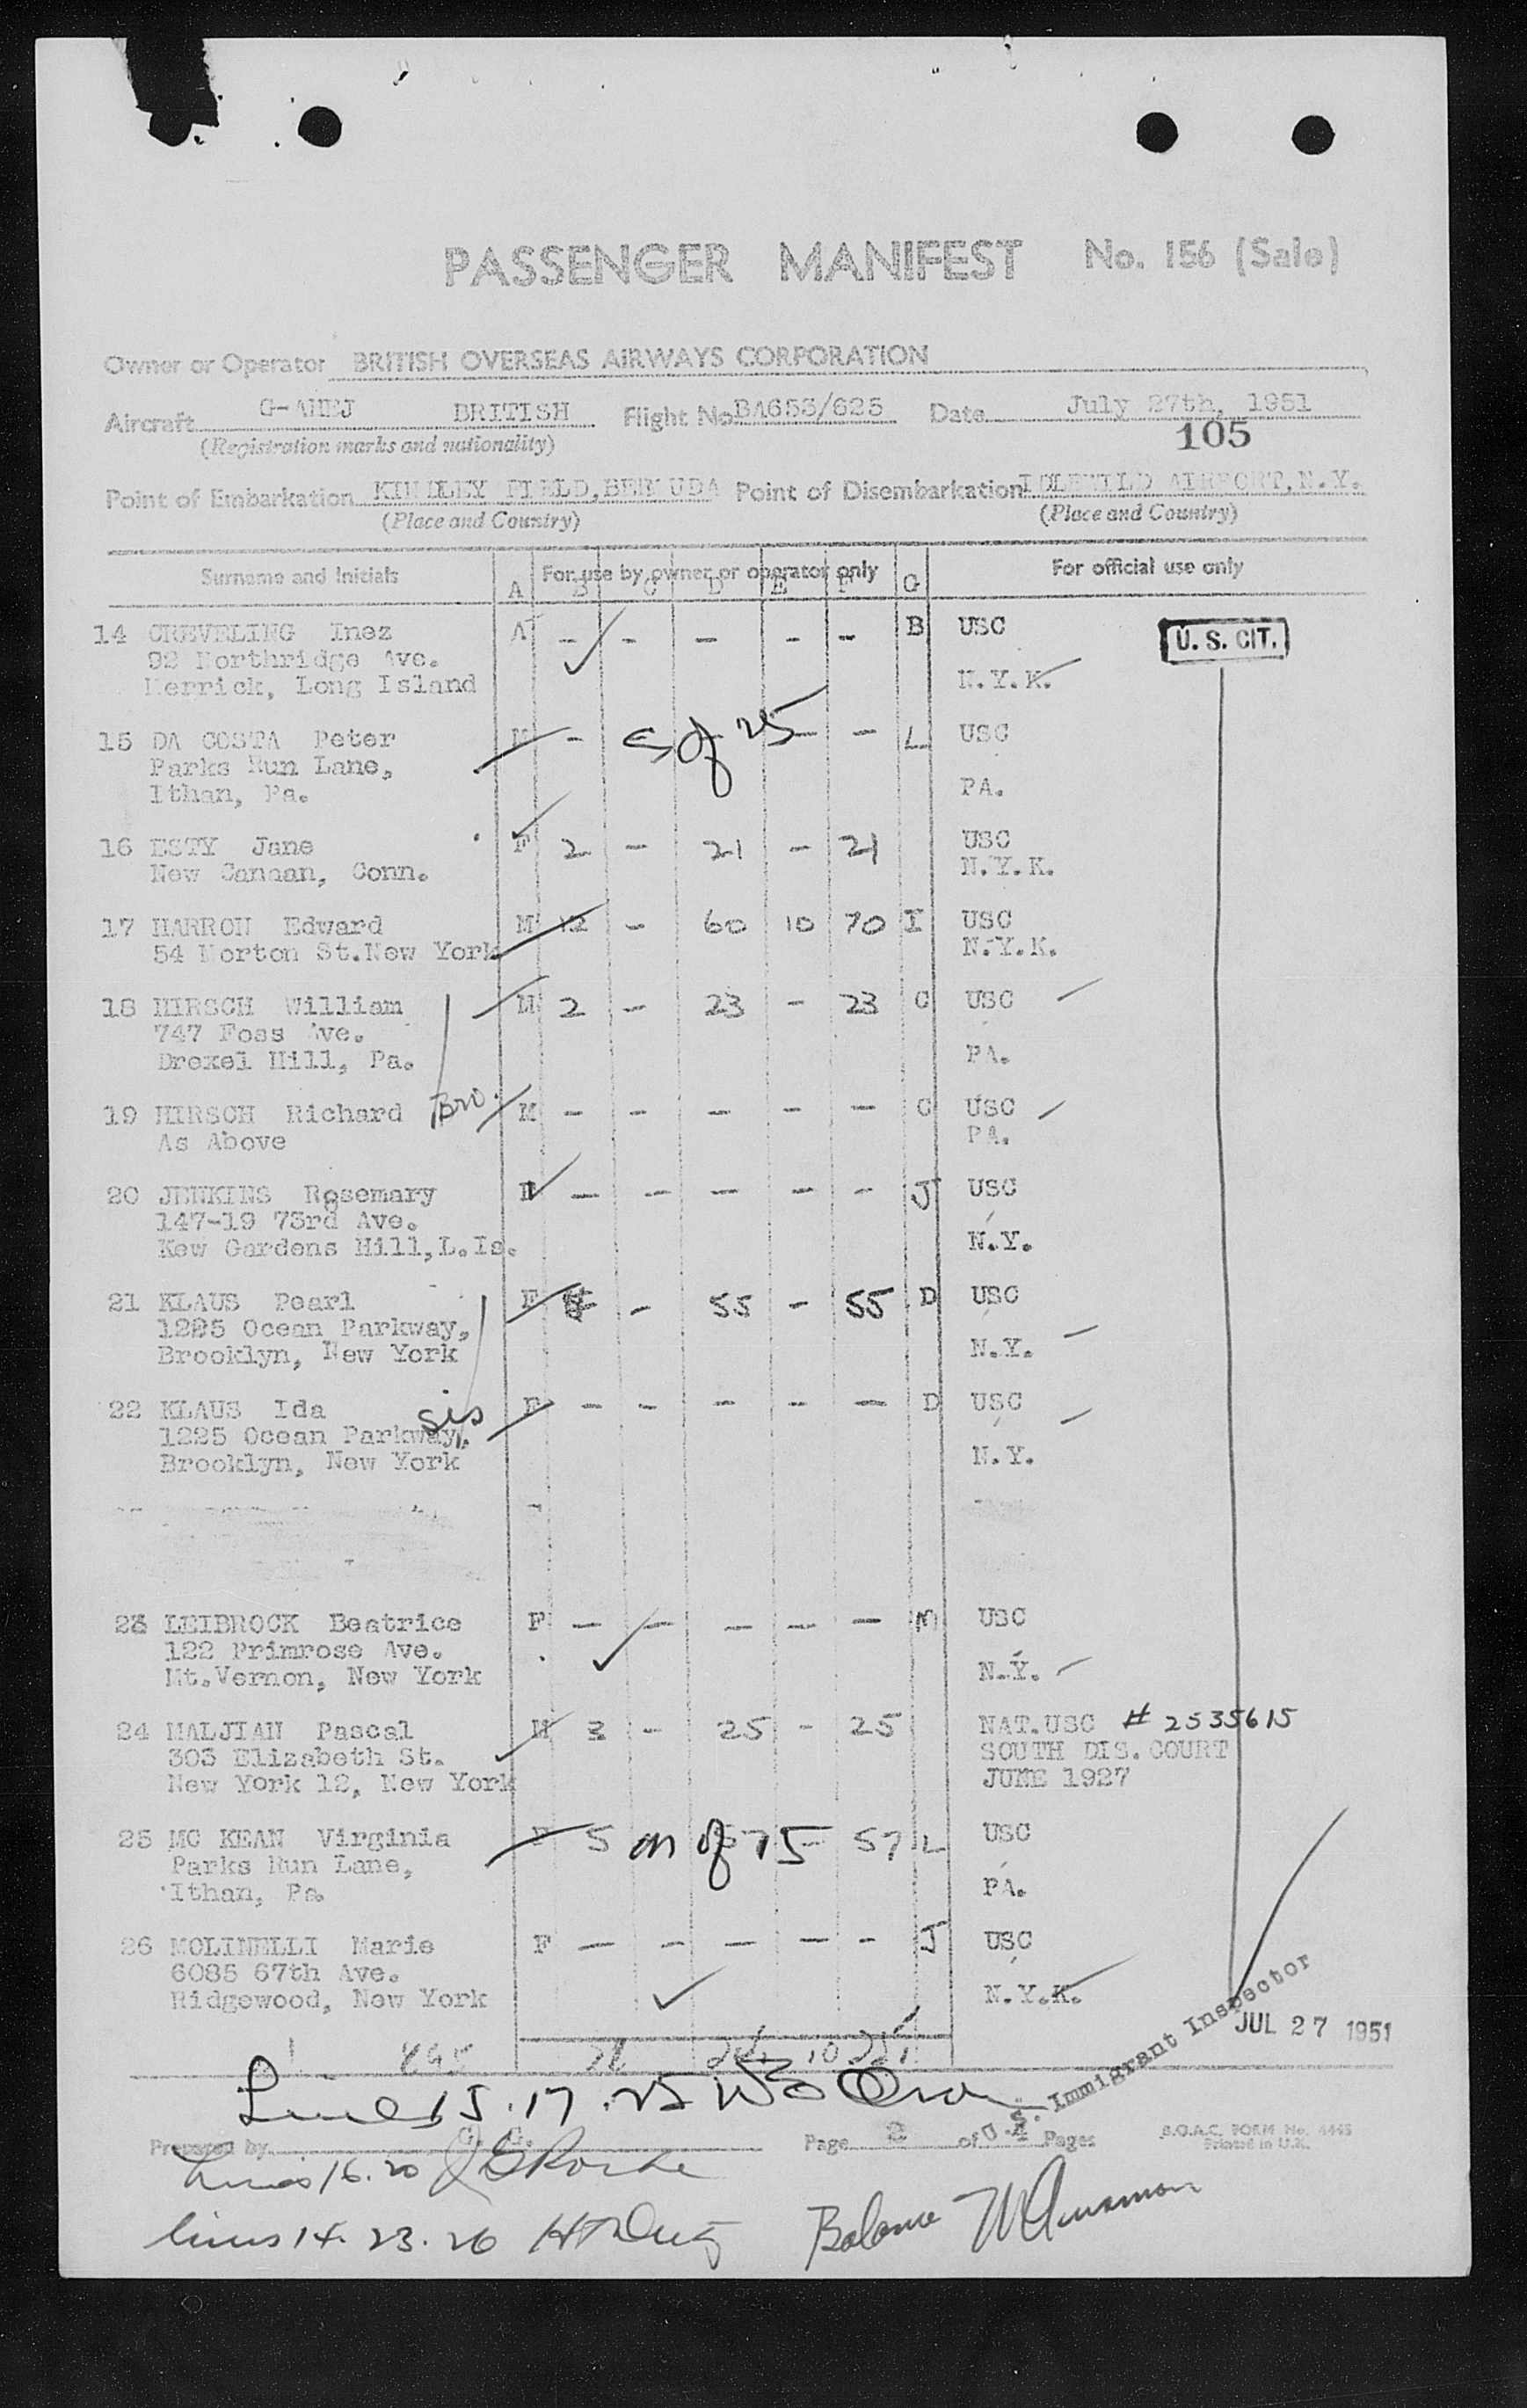 PASSENGER MANIFEST No. 156 (Sale)
Owner or Operator BRITISH OVERSEAS AIRWAYS CORPORATION
Aircraft G-AHEJ BRITISH Flight No. BA653/625 Date July 27th, 1951
(Registration marks and nationality) 105
Point of Embarkation KINDLEY FIELD, BERMUDA Point of Disembarkation IDLEWILD AIRPORT, N.Y.
(Place and Country) (Place and Country)
Surname and Initials For use by owner or operator only For official use only
A B C D E F G
14 CREVELING Inez A - - - - - B USC U. S. CIT.
92 Northridge Ave.
Merrick, Long Island N.Y.K.
15 DA COSTA Peter M - S of 25 - - L USC
Parks Run Lane,
Ithan, Pa. PA.
16 ESTY Jane F 2 - 21 - 21 USC
New Canaan, Conn. N.Y.K.
17 HARRON Edward M 12 - 60 10 70 I USC
54 Morton St. New York N.Y.K.
18 HIRSCH William M 2 - 23 - 23 C USC
747 Foss Ave.
Drexel Hill, Pa. PA.
19 HIRSCH Richard Bro. M - - - - - C USC
As Above PA.
20 JENKINS Rosemary F - - - - - J USC
147-19 73rd Ave.
Kew Gardens Hill, L.Is. N.Y.
21 KLAUS Pearl F 4 - 55 - 55 D USC
1225 Ocean Parkway,
Brooklyn, New York N.Y.
22 KLAUS Ida sis F - - - - - D USC
1225 Ocean Parkway,
Brooklyn, New York N.Y.
23 LEIBROCK Beatrice F - - - - - M USC
122 Primrose Ave.
Mt. Vernon, New York N.Y.
24 MALJIAN Pascal M 3 - 25 - 25 NAT.USC # 2535615
303 Elizabeth St. SOUTH DIS. COURT
New York 12, New York JUNE 1927
25 MC KEAN Virginia F 5 m of 15 - 57 L USC
Parks Run Lane,
Ithan, Pa. PA.
26 MOLINELLI Marie F - - - - - J USC
6085 67th Ave.
Ridgewood, New York N.Y.K.
U.S. Immigrant Inspector
JUL 27 1951
10
Lines 15. 17. 25
Prepared by Page 2 of 4 Pages B.O.A.C. FORM No. 4445
Printed in U.K.
Lines 16. 20
lines 14. 23. 26 Balance